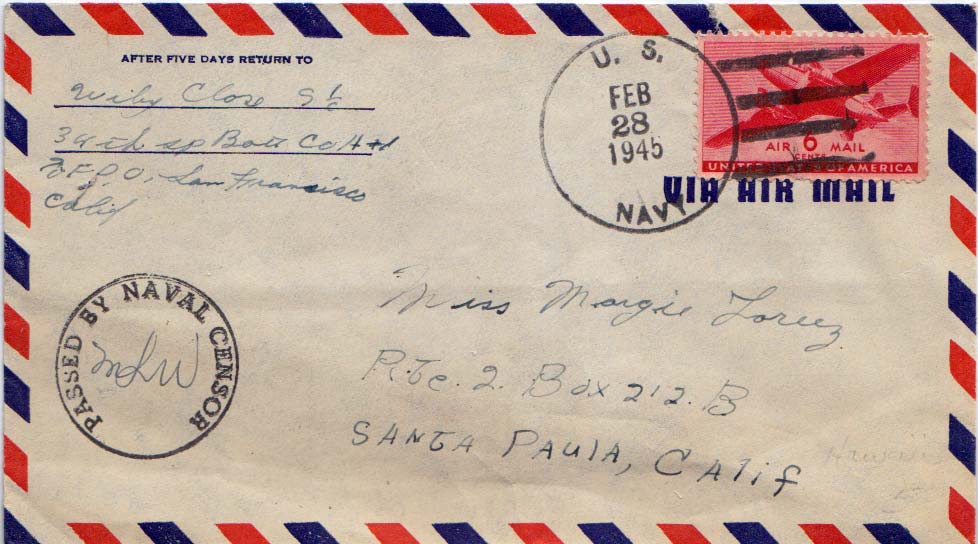 AFTER FIVE DAYS RETURN TO
Wiby Close
34th Sp Batt Co. Hd
F.P.O. San Francisco
Calif
U. S.
FEB
28
1945
NAVY
AIR 6 MAIL
CENTS
UNITED STATES OF AMERICA
VIA AIR MAIL
PASSED BY NAVAL CENSOR
MLW
Miss Margie Lorenz
Rte. 2. Box 212. B
SANTA PAULA, Calif
Hawaii